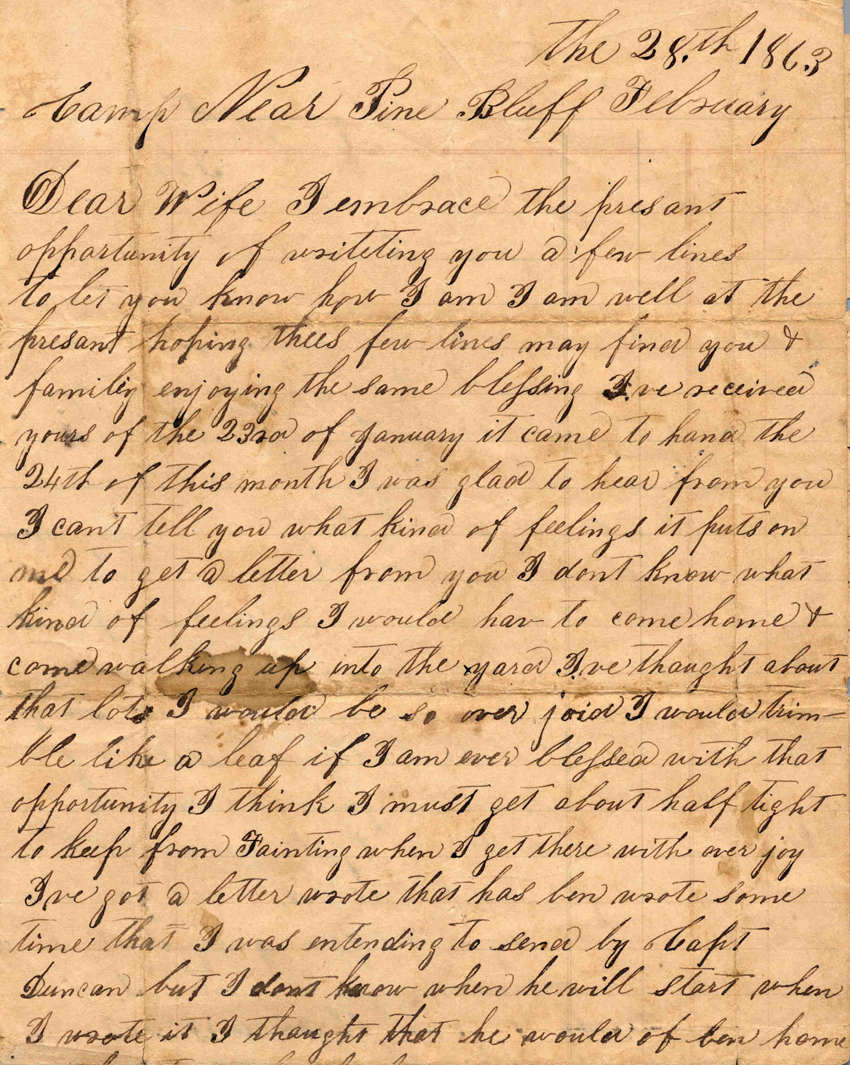 the 28.th 1863
Camp Near Pine Bluff February
Dear Wife I embrace the presant
opportunity of writeting you a few lines
to let you know how I am I am well at the
presant hoping thees few lines may find you &
familiy enjoying the same blessing I.ve received
yours of the 23rd of January it came to hand the
24th of this month I was glad to hear from you
I cant tell you what kind of feelings it puts on
me to get a letter from you I dont know what
kind of feelings I would hav to come home &
come walking up into the yard I.ve thought about
that lots I would be so over joid I would trim-
ble like a leaf if I am ever blessed with that
opportunity I think I must get about half tight
to keep from Fainting when I get there with over joy
I've got a letter wrote that has ben wrote some
time that I was entending to send by Capt
Duncan but I dont know when he will start when
I wrote it I thaught that he would of ben home